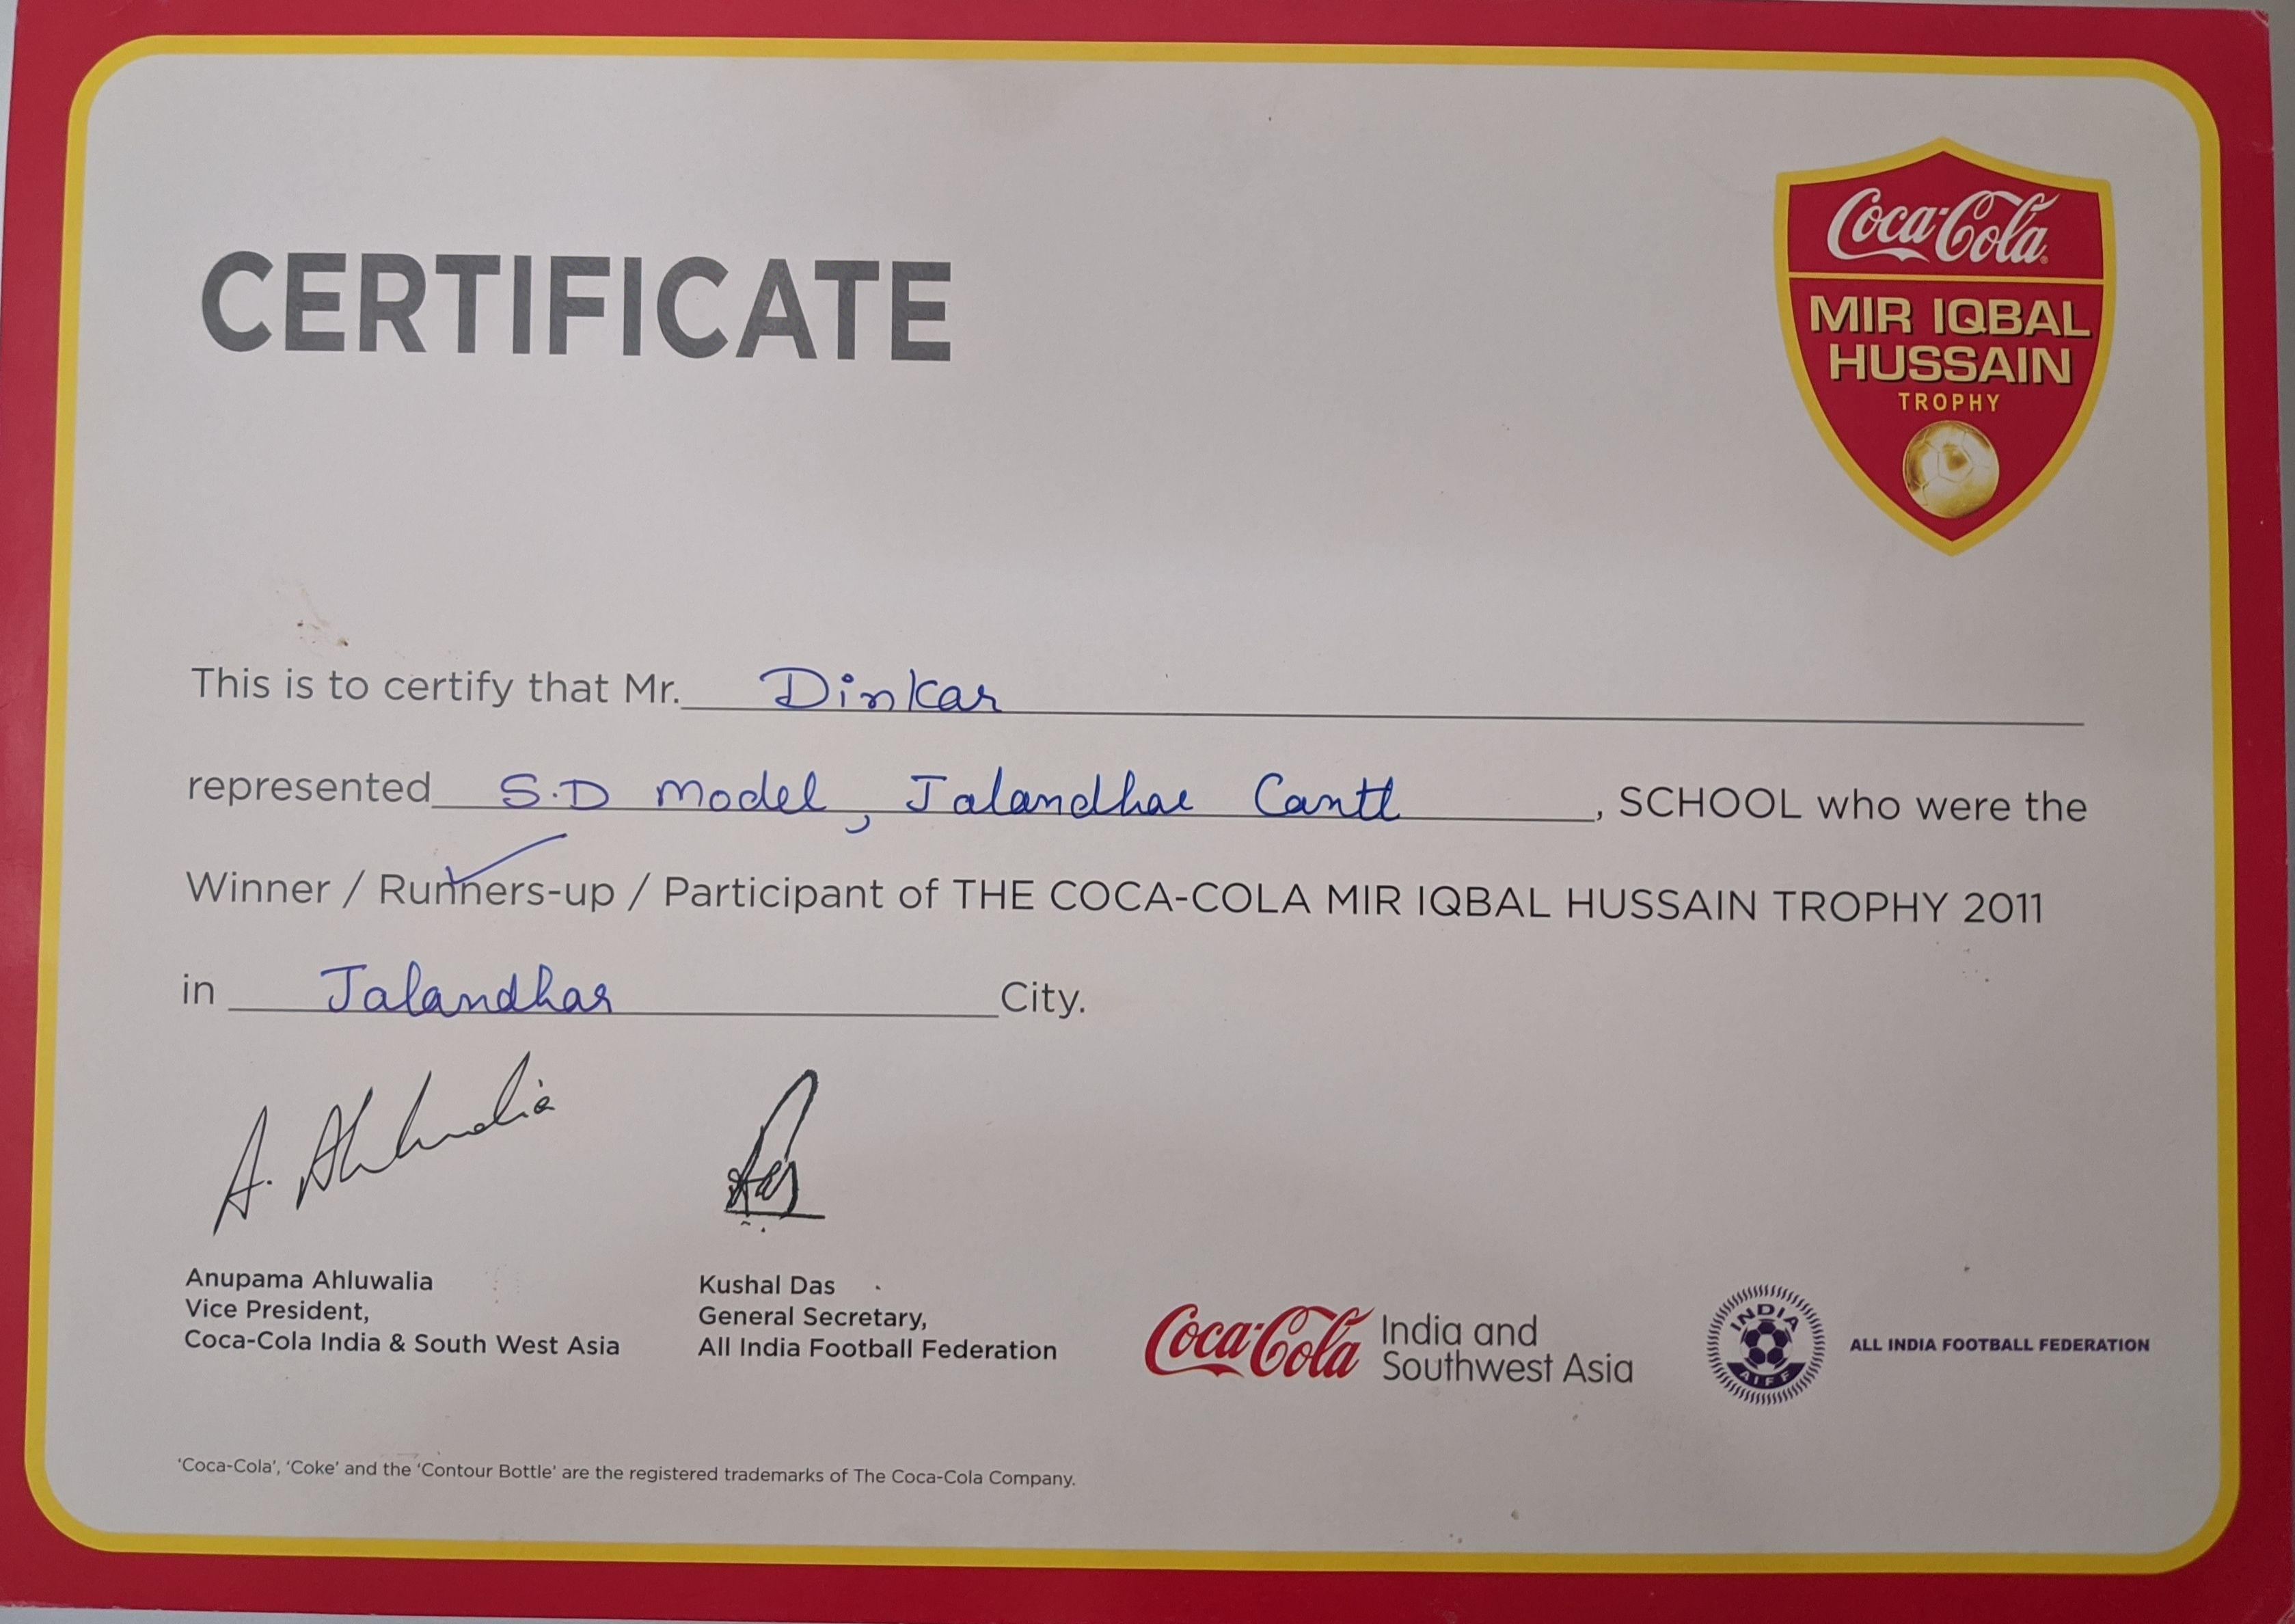 CERTIFICATE
Coca-Cola
MIR IQBAL
HUSSAIN
TROPHY
This is to certify that Mr. Dinkar
represented S.D Model, Jalandhar Cantt, SCHOOL who were the
Winner / Runners-up / Participant of THE COCA-COLA MIR IQBAL HUSSAIN TROPHY 2011
in Jalandhar City.
A. Ahluwalia
Anupama Ahluwalia
Vice President,
Coca-Cola India & South West Asia
Kushal Das
General Secretary,
All India Football Federation
Coca-Cola India and
Southwest Asia
INDIA
AIFF
ALL INDIA FOOTBALL FEDERATION
'Coca-Cola', 'Coke' and the 'Contour Bottle' are the registered trademarks of The Coca-Cola Company.